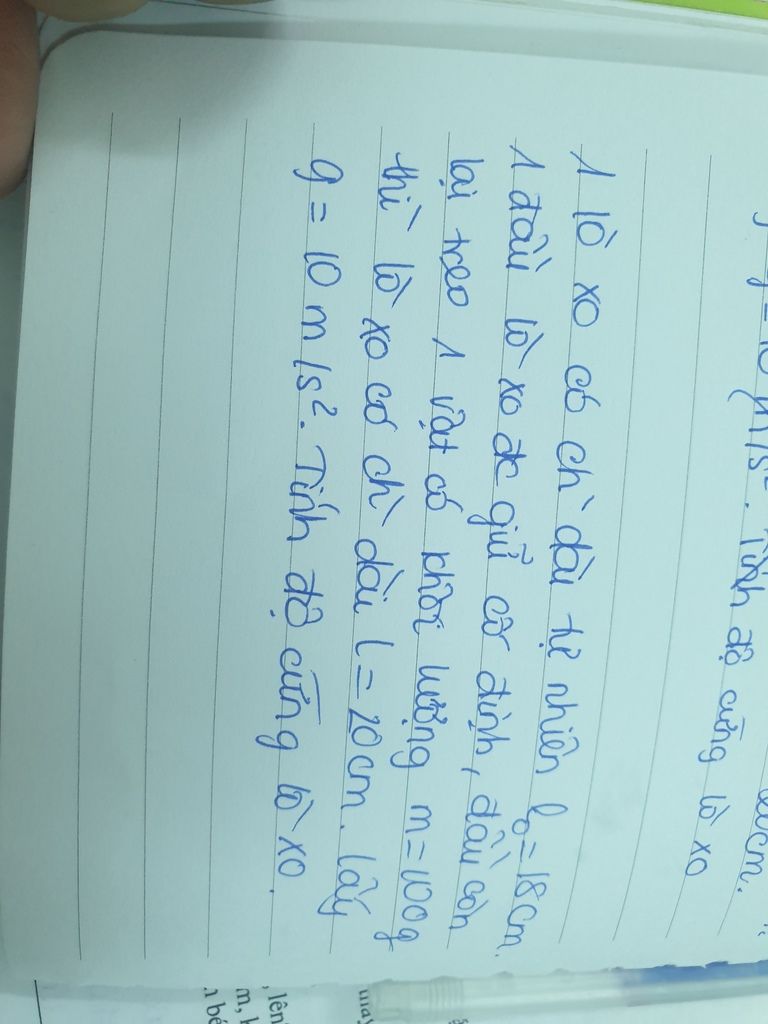 g = 10 m/s². Tính độ cứng lò xo
1 lò xo có ch` dài tự nhiên l₀ = 18cm.
1 đầu lò xo đc giữ cố định, đầu còn
lại treo 1 vật có khối lượng m = 100g
thì lò xo có ch` dài l = 20cm. Lấy
g = 10 m/s². Tính độ cứng lò xo.